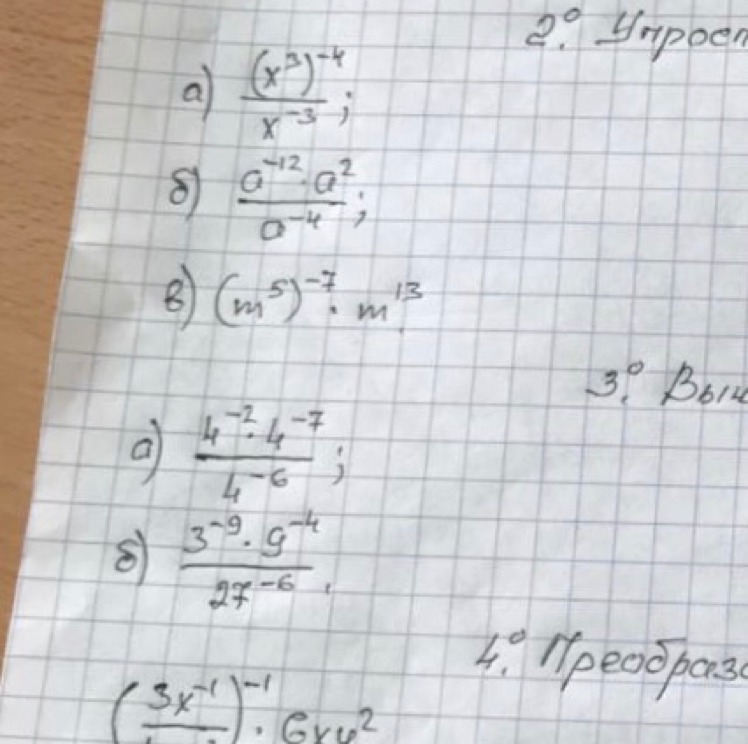 2.° Упрост
а) (x³)⁻⁴ / x⁻³ ;
б) a⁻¹² · a² / a⁻⁴ ;
в) (m⁵)⁻⁷ · m¹³
3.° Выч
а) 4⁻² · 4⁻⁷ / 4⁻⁶ ;
б) 3⁻⁹ · 9⁻⁴ / 27⁻⁶ .
4.° Преобразо
(3x⁻¹ / )⁻¹ · 6xy²